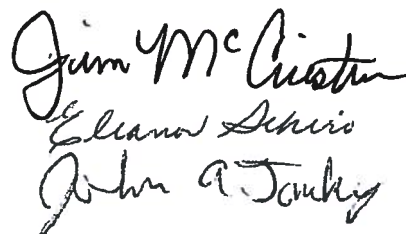 Jim McCuistian
Eleanor Schiro
John A Jouky